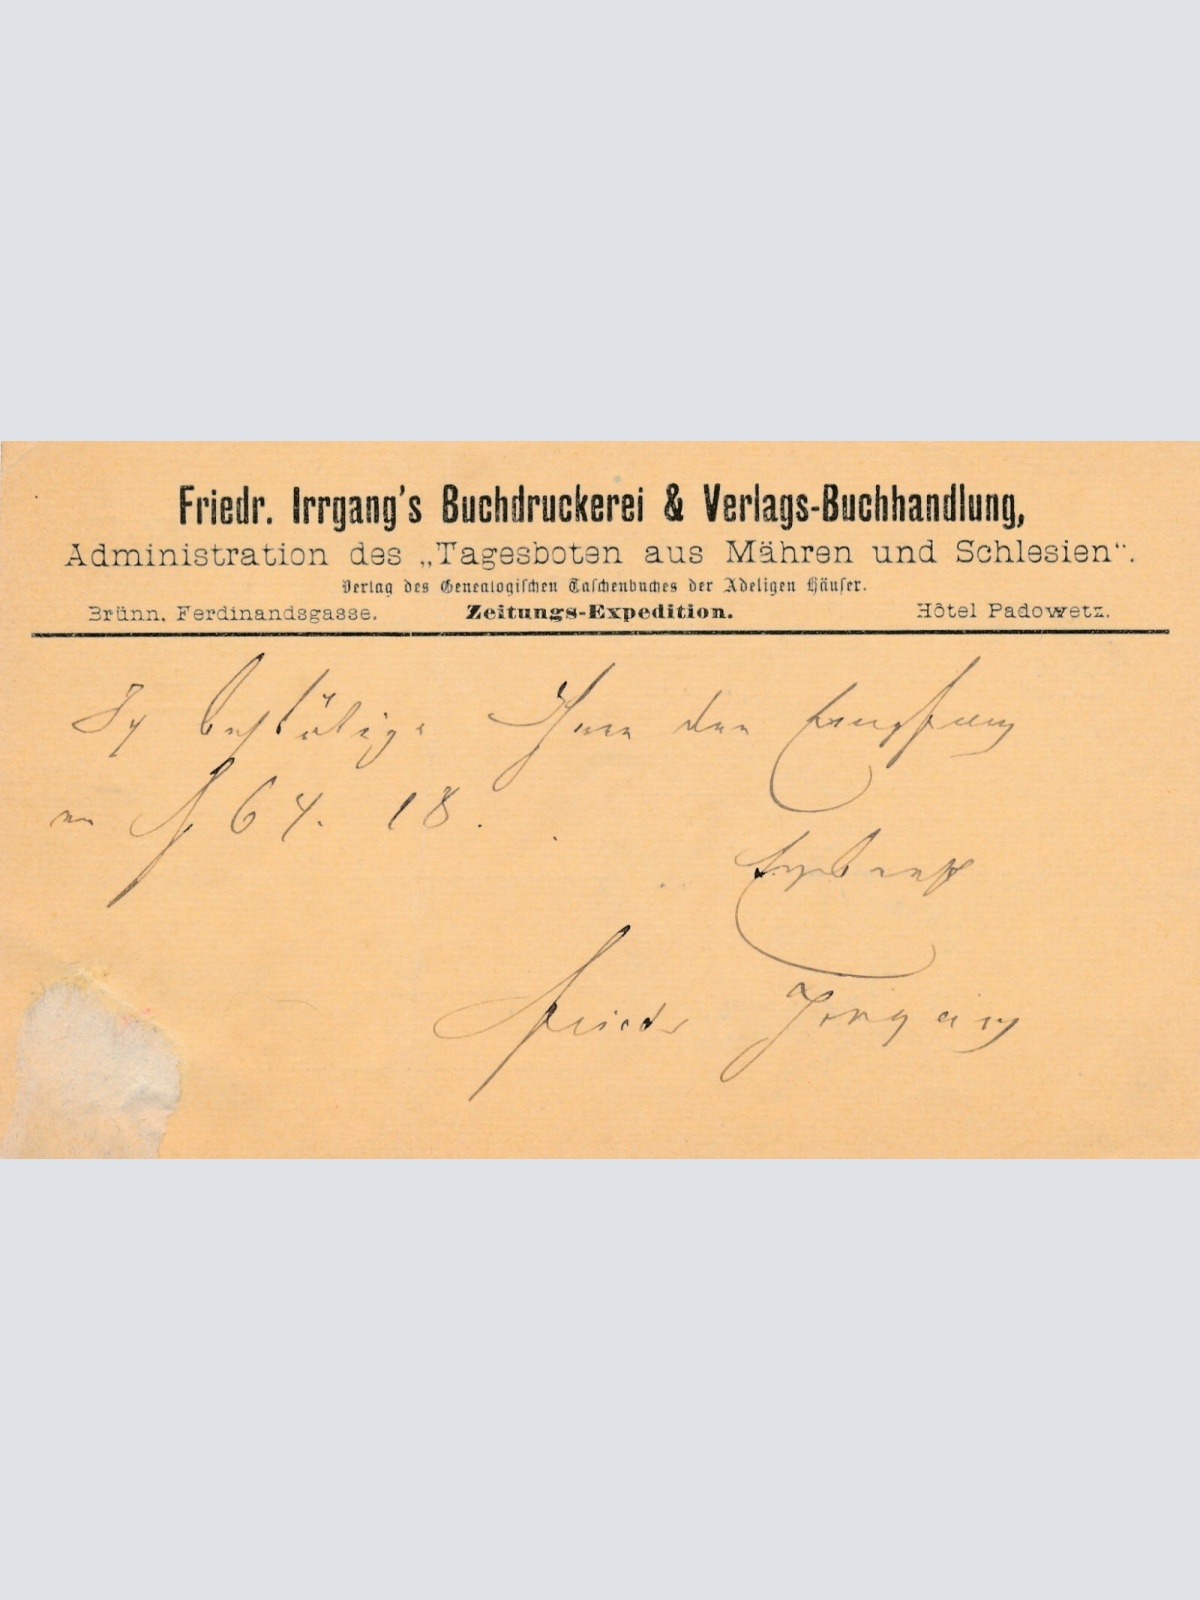 Friedr. Irrgang's Buchdruckerei & Verlags-Buchhandlung,
Administration des „Tagesboten aus Mähren und Schlesien“.
Verlag des Genealogischen Taschenbuches der Adeligen Häuser.
Brünn, Ferdinandsgasse. Zeitungs-Expedition. Hôtel Padowetz.
Ich bestätige Ihnen den Empfang
von f 64. 18.
Ergebenst
Friedr Irrgang